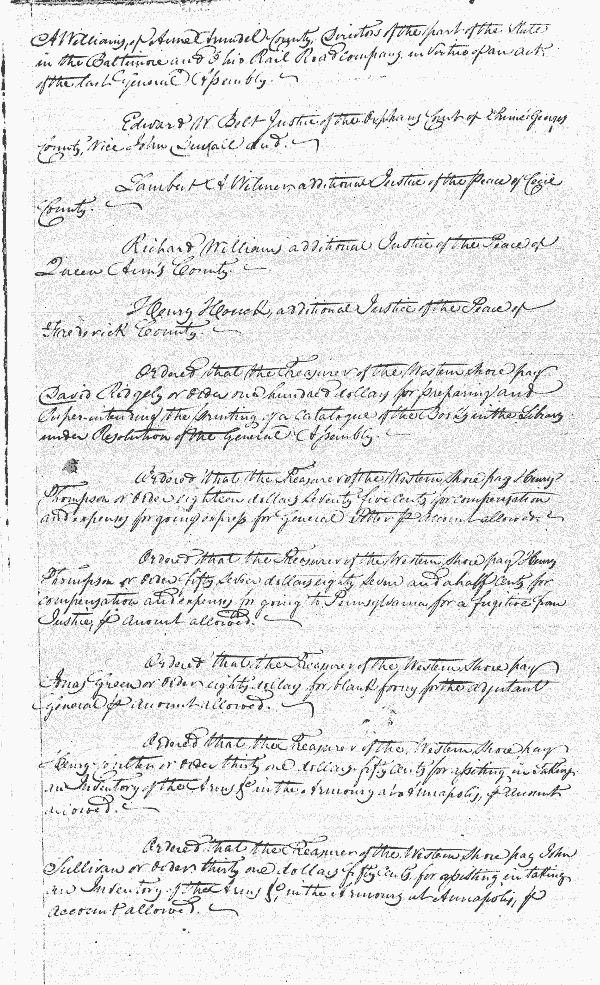 A Williams, of Anne Arundel County, Directors of the part of the State
in the Baltimore and Ohio Rail Road company, in virtue of an act
of the last General Assembly.
Edward W Belt Justice of the Orphans Court of Prince Georges
County, Vice John decd.
Lambert Wilmer, additional Justice of the Peace of Cecil
County.
Richard Williams additional Justice of the Peace of
Queen Ann's County.
Henry Houck, additional Justice of the Peace of
Frederick County.
Ordered that the Treasurer of the Western Shore pay
David Ridgely or order one hundred dollars for preparing and
Superintending the printing of a Catalogue of the Books in the Library
under Resolution of the General Assembly.
Ordered that the Treasurer of the Western Shore pay Henry
Thompson or order eighteen dollars Seventy five cents for compensation
and expenses for going express for General pr account allowed.
Ordered that the Treasurer of the Western Shore pay Henry
Thompson or order fifty Seven dollars eighty Seven and a half cents for
compensation and expenses for going to Pennsylvania for a fugitive from
Justice, pr amount allowed.
Ordered that the Treasurer of the Western Shore pay
Jonas Green or order eighty dollars for blank forms for the adjutant
General pr amount allowed.
Ordered that the Treasurer of the Western Shore pay
Henry or order thirty one dollars fifty cents for assisting in taking
an Inventory of the Arms &c in the Armoury at Annapolis, pr amount
allowed.
Ordered that the Treasurer of the Western Shore pay John
Sullivan or order thirty one dollars fifty cents for assisting in taking
an Inventory of the Arms &c, in the Armoury at Annapolis, pr
account allowed.